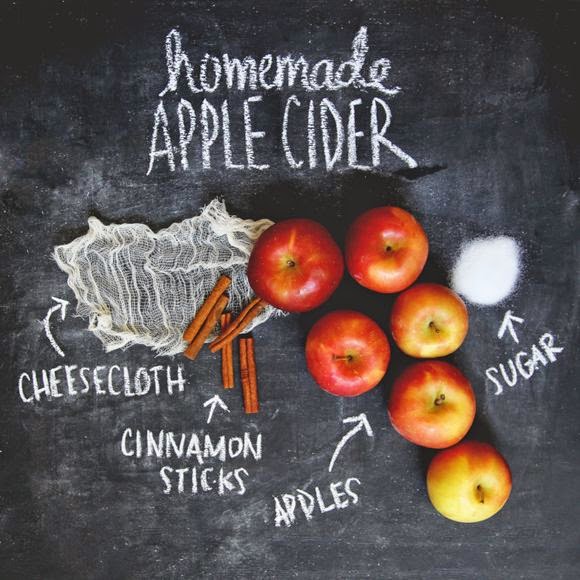 homemade
APPLE CIDER
SUGAR
CHEESECLOTH
CINNAMON
STICKS
APPLES